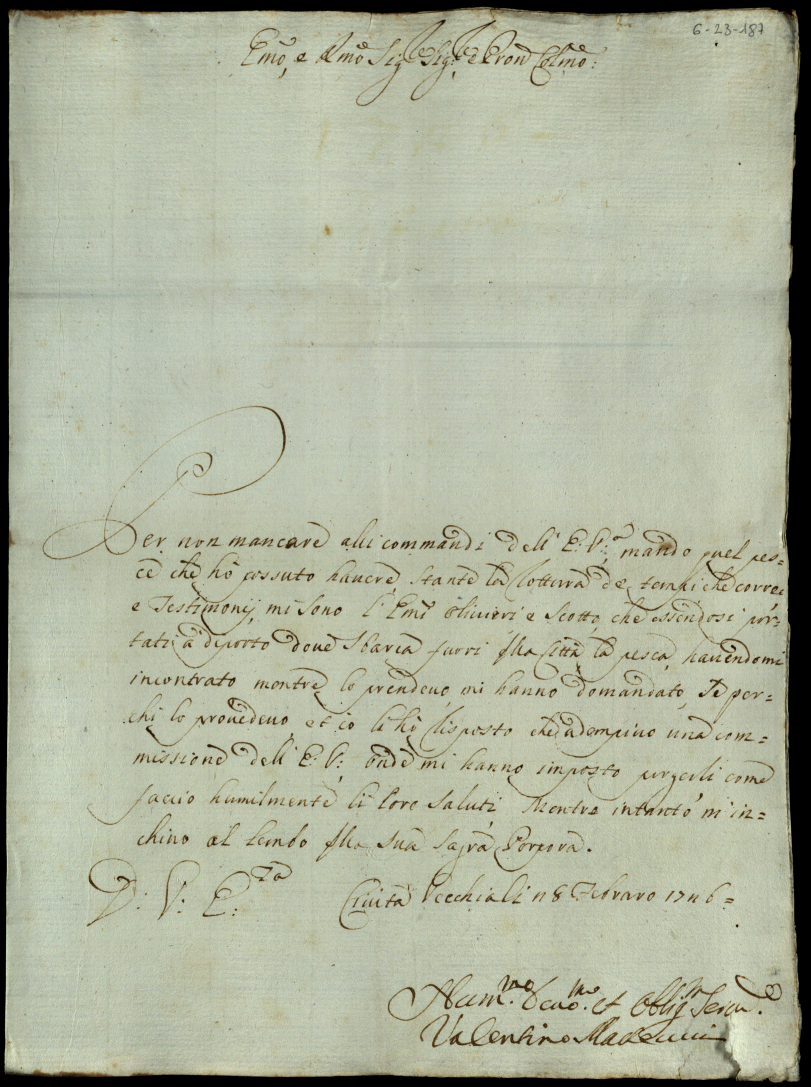 6-23-187
Emõ, e Rmõ Sig.re Sig.re e Pron Colmõ:
Per non mancare alli commandi dell' E: V:ra mando quel pes=
ce che hò possuto havere, stante la rottura de tempi che corre,
e Testimonij mi sono l' Emi Olivieri e Scotto, che essendosi por=
tati à diporto dove sbarca fuori della Città la pesca, havendomi
incontrato mentre lo prendevo, mi hanno domandato, Se per=
chi lo provedevo, et io li hò risposto che adempivo una com=
missione dell' E: V:, onde mi hanno imposto porgerli come
faccio humilmente li loro saluti. Mentre intanto m' in=
chino al lembo della sua sagra Porpora.
D: V: E:za Civita Vecchia li 8 Febraro 1746=
Hum.mo Devo.mo et Obblig.mo Serv.e
Valentino